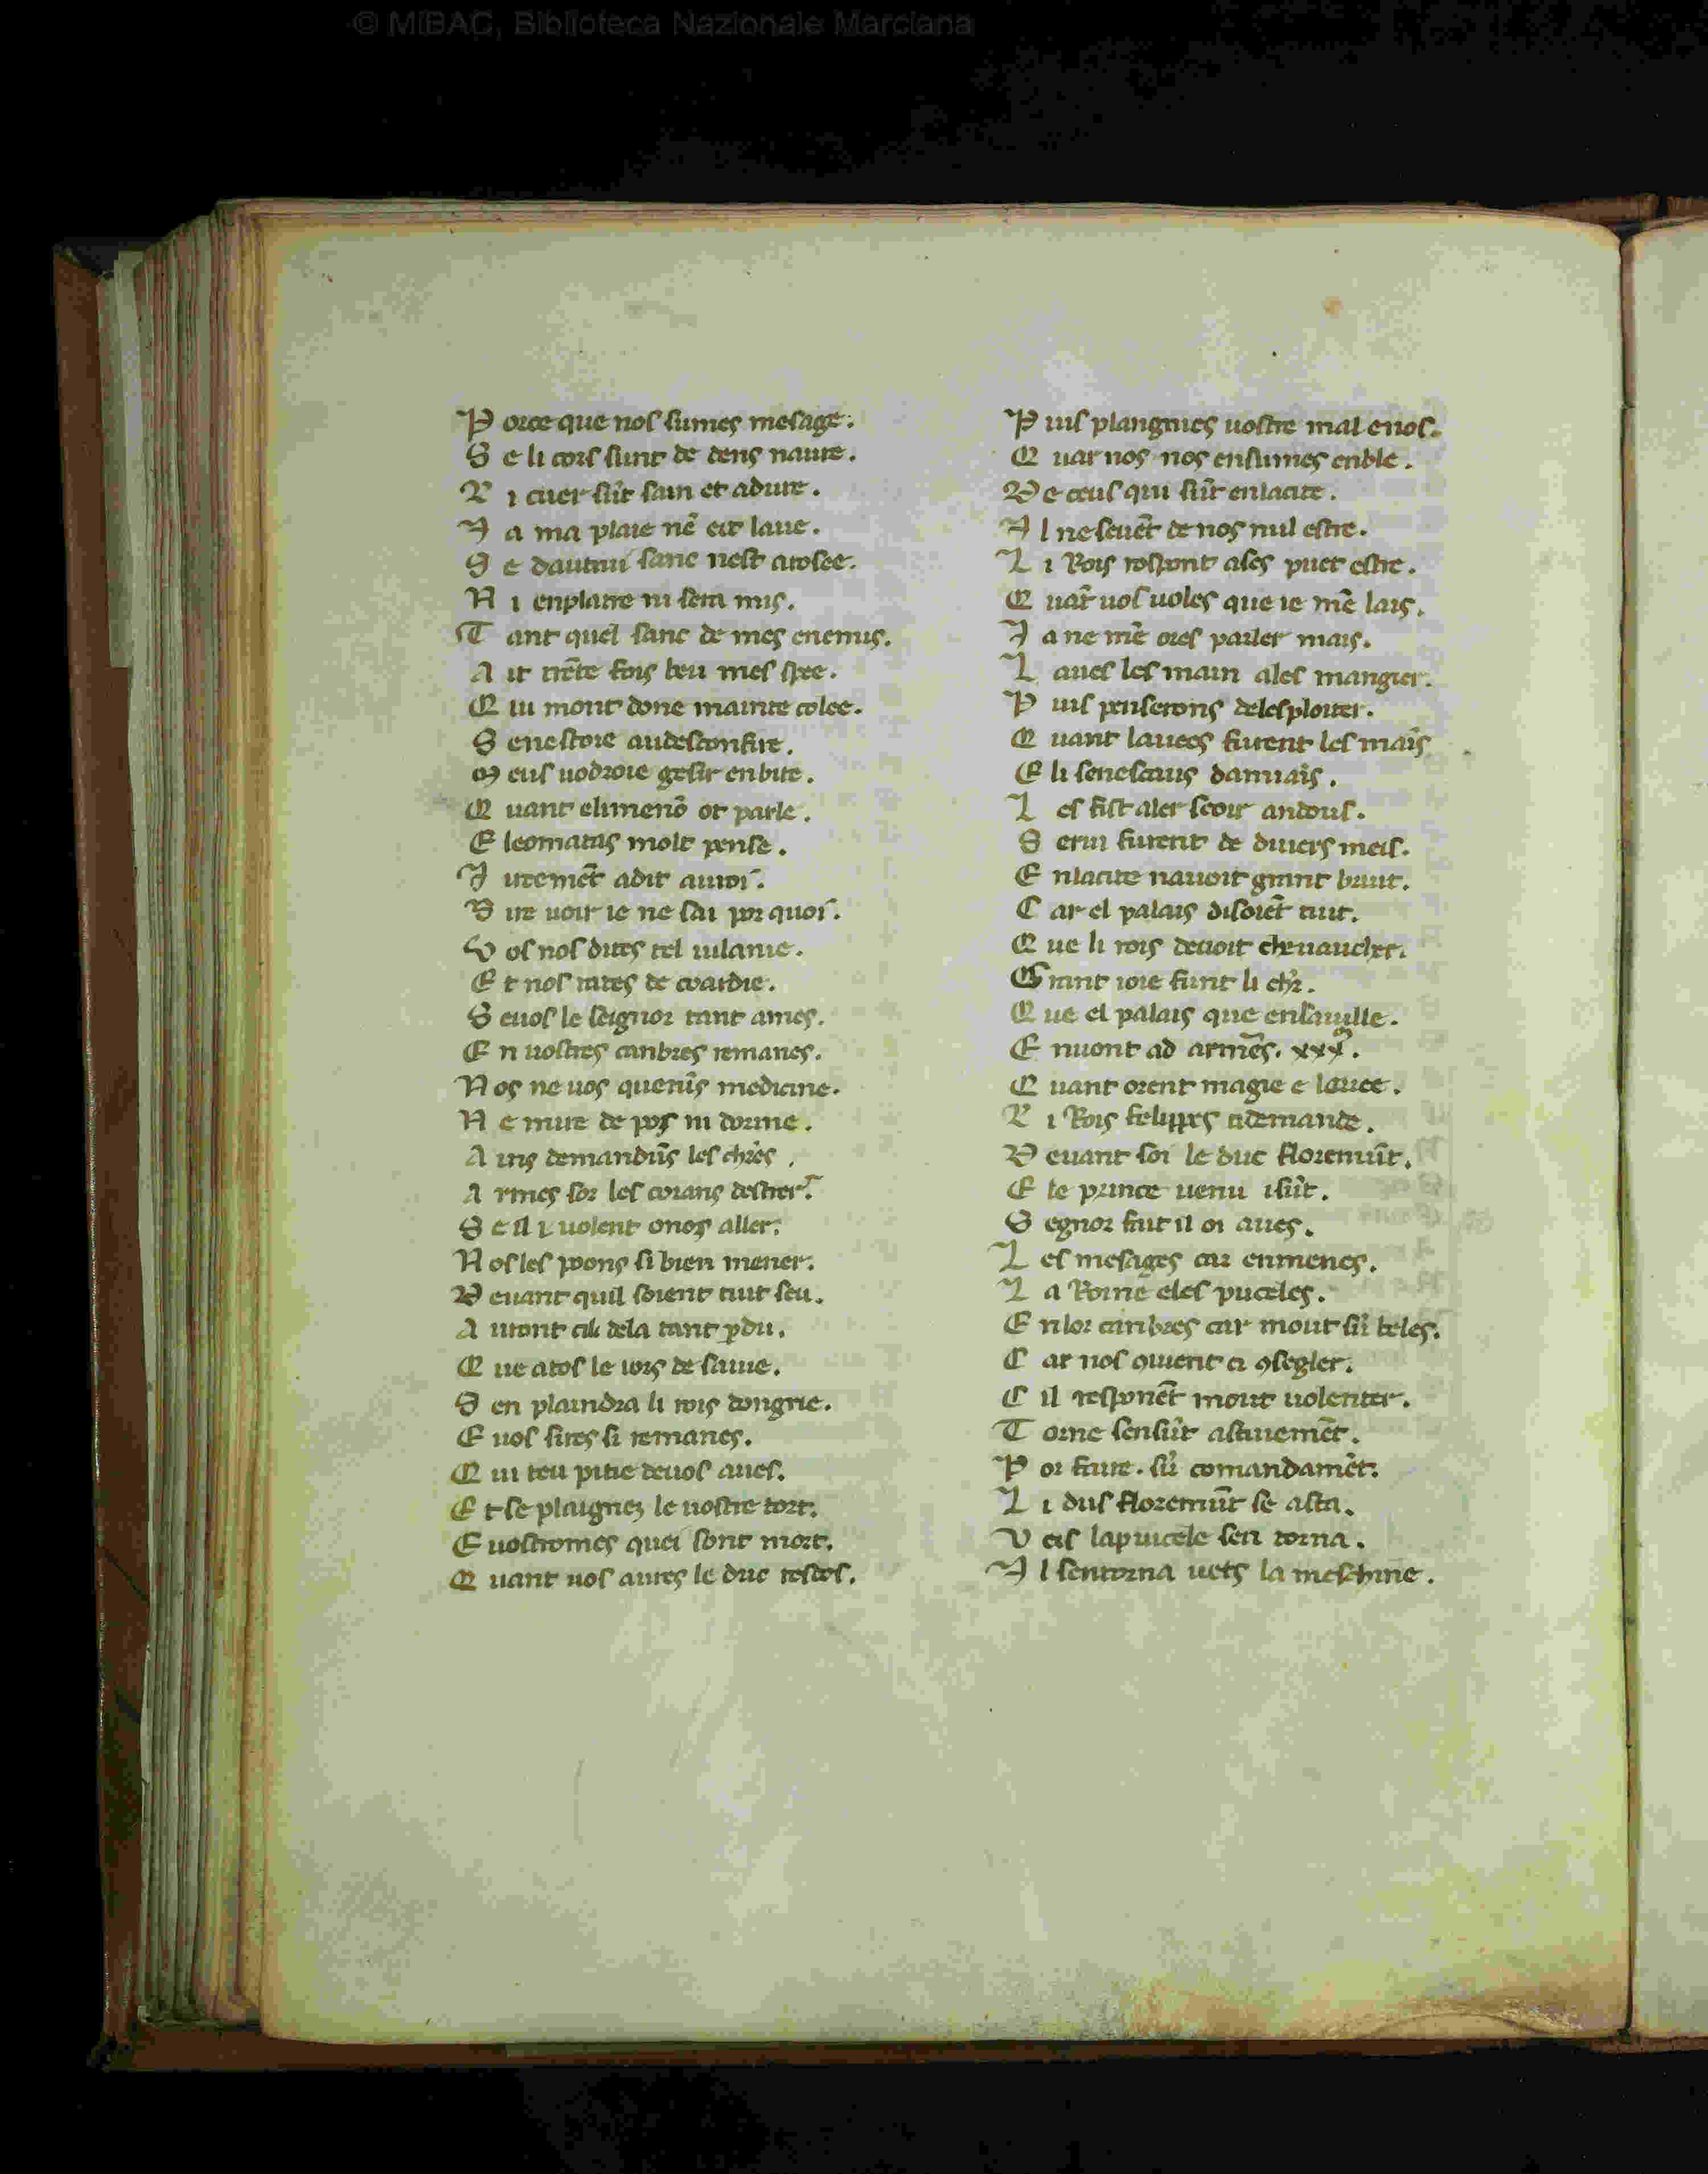 © MiBAC, Biblioteca Nazionale Marciana
P orce que nos sumes mesage.
S e li cors sunt de dens naure.
L i cuer sūt sain et adure.
J a ma plaie nē ert laue.
S e dautrui sanc nest arosee.
N i enplatre ni sera mis.
T ant quel sanc de mes enemis.
A it trēte fois beu mes spee.
Q ui mont done mainte colee.
S enestoie audesconfire.
M eus uodroie gesir enbire.
Q uant elimenō ot parle.
E leomatas molt pense.
J reemēt adit auroi.
S ire uoir ie ne sai por quoi.
V os nos dites tel uilanie.
E t nos rates de coardie.
S euos le seignor tant ames.
E n uostres canbres remanes.
N os ne uos querūs medicine.
N e mire de pos ni dorme.
A ins demandūs les chrēs.
A rmes sor les corans destrer.
S e il i uolent onos aller.
N os les poons si bien mener.
D euant quil soient tuit seu.
A uront cili dela tant pdu.
Q ue atos le iors de sa uie.
S en plaindra li rois dongrie.
E uos sires si remanes.
Q ui teu pitie deuos aues.
E t se plaignez le uostre tort.
E uostromes quei sont mort.
Q uant uos aures le duc restos.
P uis plangnies uostre mal enos.
Q uar nos nos ensumes enble.
D e ceus qui sūt enlacite.
J l ne seuēt de nos nul estre.
L i Rois respont ases puet estre.
Q uāt uos uoles que ie mē lais.
J a ne mē ores parler mais.
L aues les main ales mangier.
P uis penserons delesploiter.
Q uant lauees furent les maīs
E li senescaus damiaīs.
L es fist aler seoir andous.
S erui furent de diuers meis.
E nlacite nauoit grant bruit.
C ar el palais disoiēt tuit.
Q ue li rois deuoit cheuaucher.
G rant ioie funt li chr.
Q ue el palais que enlauille.
E nuont ad armēs. xxx.
Q uant orent magie e lauee.
L i Rois felippes ademande.
D euant soi le duc floremūt.
E le prince uenu isūt.
S egnor fait il oi aues.
L es mesages car enmenes.
L a Rome eles puceles.
E nlor canbres car mout sūt beles.
C ar nos ꝯuient a ꝯsegler.
C il responēt mout uolenter.
T orne sensūt astiuemēt.
P or faire. sū comandamēt.
L i dus floremūt se asta.
V ers lapuicele sen torna.
J l sentorna uers la meschine.